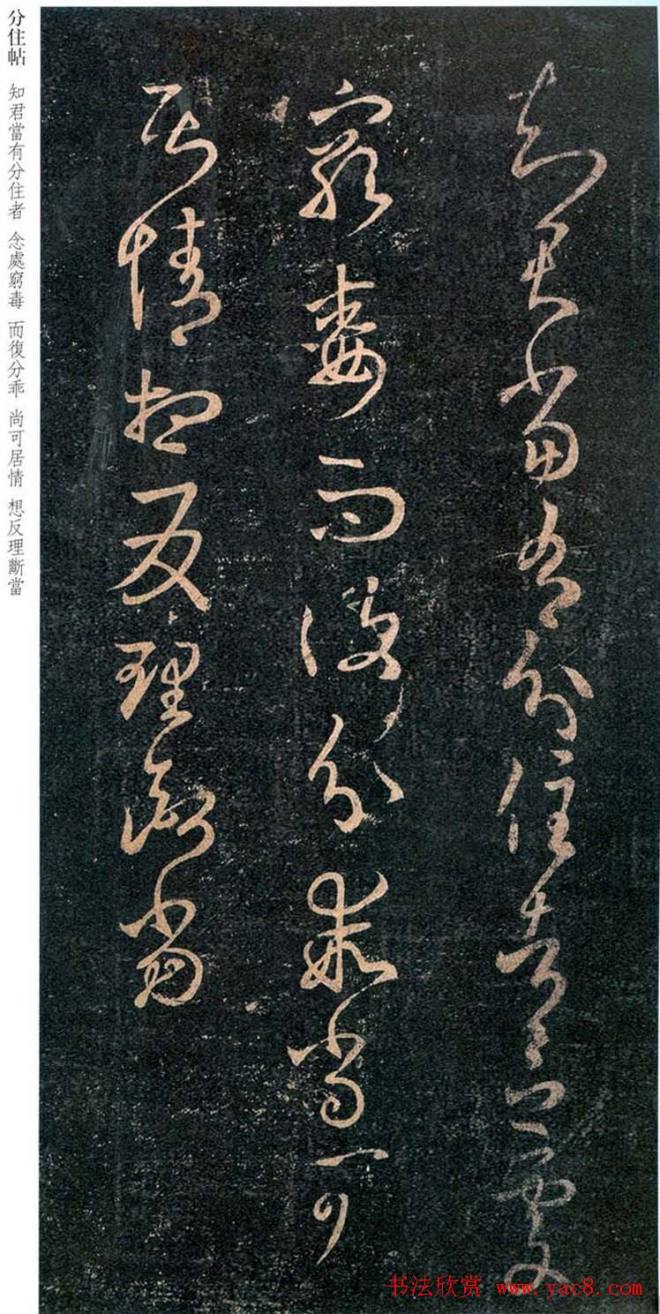 分住帖 知君當有分住者 念處窮毒 而復分乖 尚可居情 想反理斷當
知君當有分住者念處
窮毒而復分乖尚可
居情想反理斷當
书法欣赏 www.yac8.com